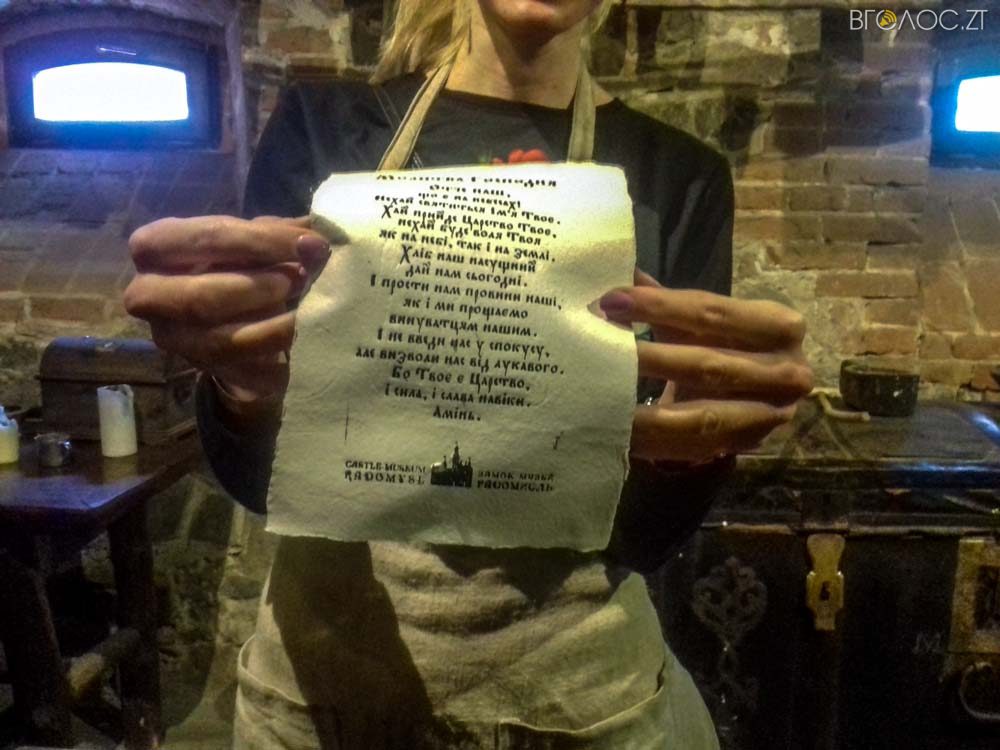 ВГОЛОС.ZT
Молитва Господня
Отче наш,
що є на небесах!
Нехай святиться Ім'я Твоє.
Хай прийде Царство Твоє,
нехай буде воля Твоя
як на небі, так і на землі.
Хліб наш насущний
дай нам сьогодні.
І прости нам провини наші,
як і ми прощаємо
винуватцям нашим.
І не введи нас у спокусу,
але визволи нас від лукавого.
Бо Твоє є Царство,
і сила, і слава навіки.
Амінь.
CASTLE-MUSEUM
RADOMYSL
ЗАМОК МУЗЕЙ
РАДОМИСЛЬ